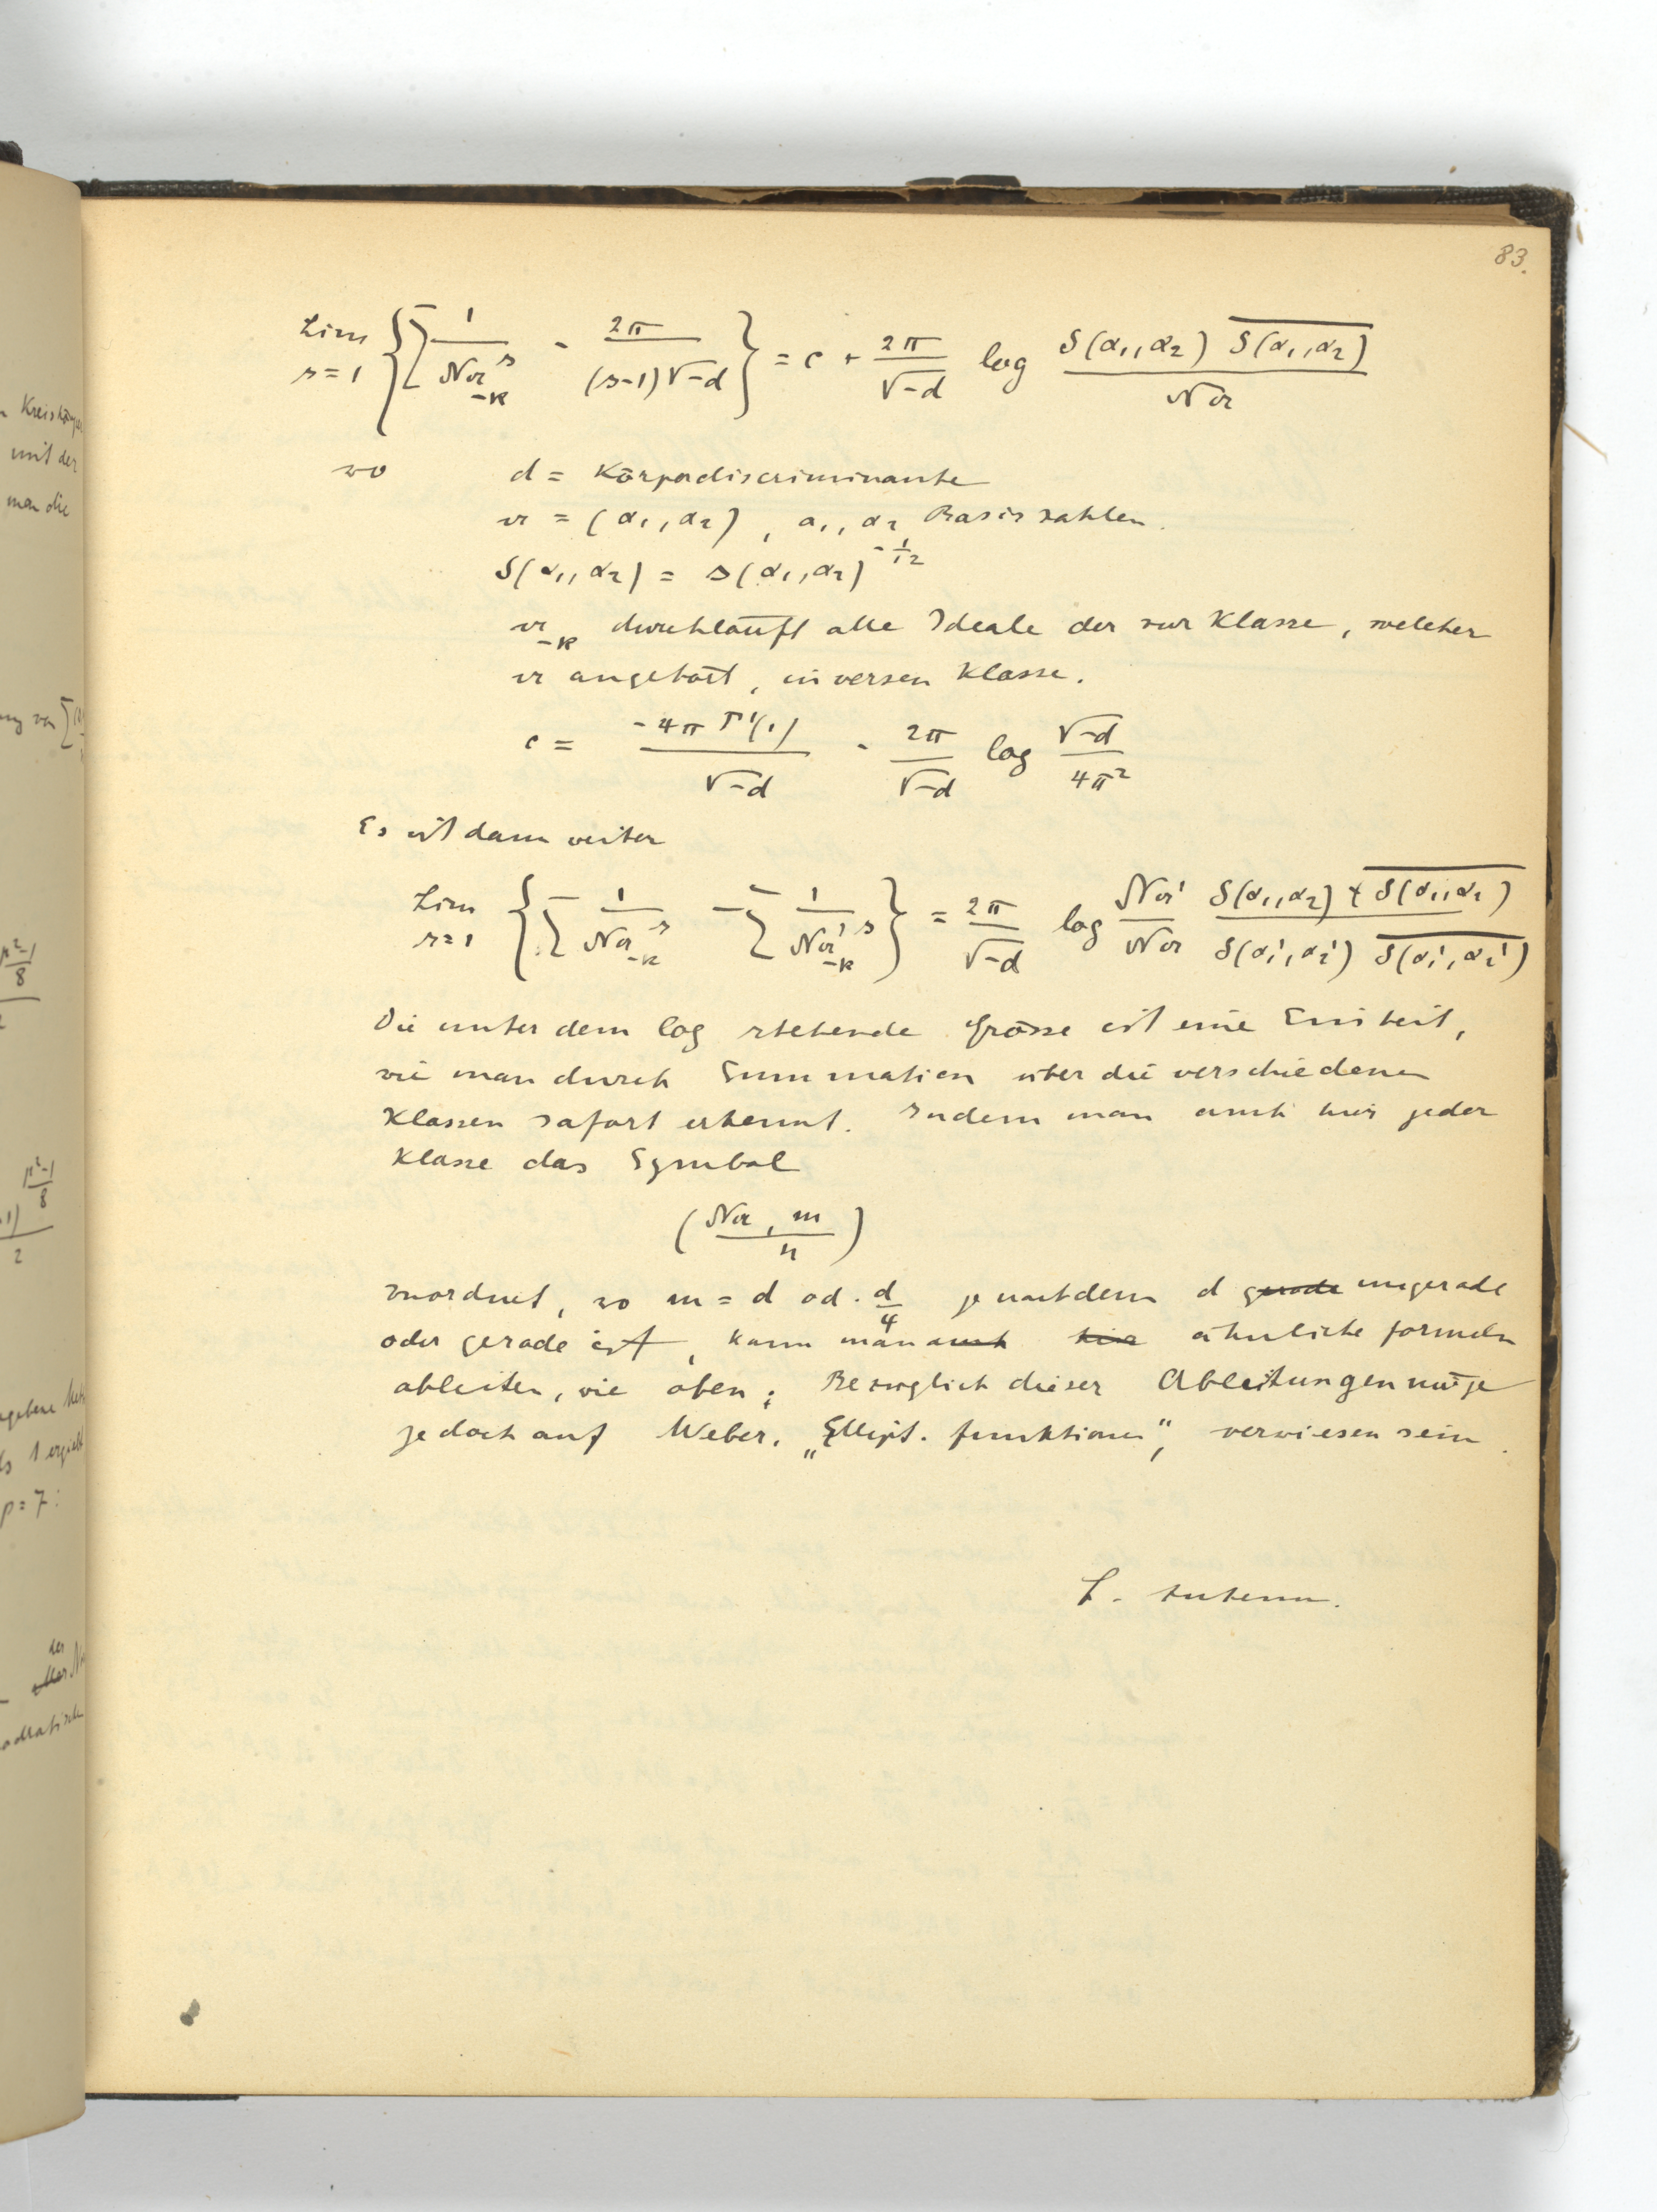 83.
Lim s=1 { ∑ 1/N𝔞₋ₖ^s - 2π/((s-1)√-d) } = c + 2π/√-d log δ(α₁,α₂) \overline{δ(α₁,α₂)} / N𝔞
wo d = Körperdiscriminante
𝔞 = (α₁, α₂), α₁, α₂ Basiszahlen.
δ(α₁, α₂) = Δ(α₁, α₂)^{-1/12}
𝔞₋ₖ durchläuft alle Ideale der zur Klasse, welcher
𝔞 angehört, inversen Klasse.
c = -4πΓ'(1)/√-d - 2π/√-d log √-d/4π²
Es ist dann weiter
Lim s=1 { ∑ 1/N𝔞₋ₖ^s - ∑ 1/N𝔞'₋ₖ^s } = 2π/√-d log N𝔞'/N𝔞 δ(α₁,α₂) \overline{δ(α₁,α₂)} / δ(α₁',α₂') \overline{δ(α₁',α₂')}
Die unter dem log stehende Grösse ist eine Einheit,
wie man durch Summation über die verschiedenen
Klassen sofort erkennt. Indem man auch hier jeder
Klasse das Symbol
(N𝔞, m / n)
zuordnet, wo m = d od. d/4 je nachdem d gerade ungerade
oder gerade ist, kann man auch hier ähnliche Formeln
ableiten, wie oben; Bezüglich dieser Ableitungen möge
jedoch auf Weber, „Ellipt. Funktionen", verwiesen sein.
Kreiskörper
mit der
man die
p=7:
der